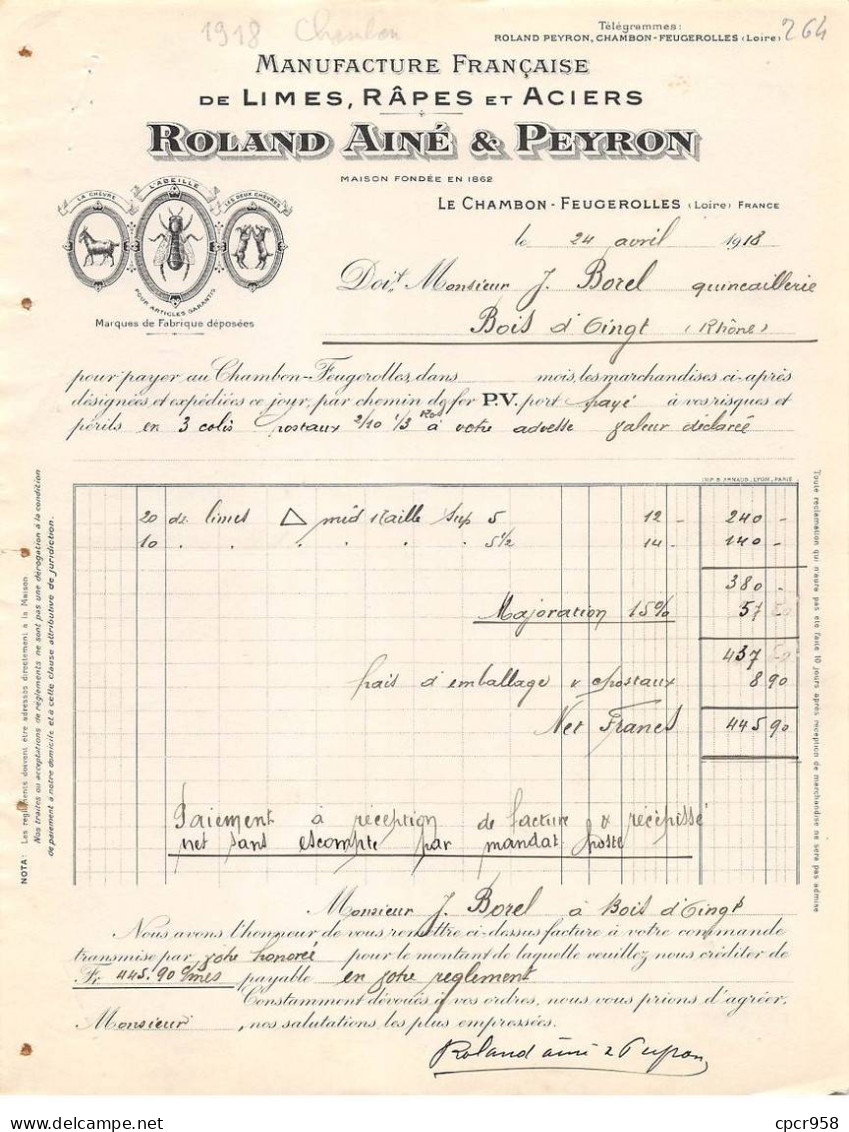 1918 Chambon
264
Télégrammes:
ROLAND PEYRON, CHAMBON-FEUGEROLLES (Loire)
MANUFACTURE FRANÇAISE
DE LIMES, RÂPES ET ACIERS
ROLAND AINÉ & PEYRON
MAISON FONDÉE EN 1862
LE CHAMBON-FEUGEROLLES (Loire) FRANCE
LA CHÈVRE
L'ABEILLE
LES DEUX CHÈVRES
POUR ARTICLES GARANTIS
Marques de Fabrique déposées
le 24 avril 1918
Doit Monsieur J. Borel quincaillerie
Bois d'Oingt (Rhône)
pour payer au Chambon-Feugerolles, dans mois, les marchandises ci-après
désignées et expédiées ce jour, par chemin de fer P.V. port payé à vos risques et
périls en 3 colis postaux 2/10 1/3 Ros à votre adresse valeur déclarée
IMP. B. ARNAUD, LYON, PARIS
20 dz limes △ mid taille Sup 5 12 - 240 -
10 . . . . . 5 1/2 14 - 140 -
380 -
Majoration 15% 57 50
437 50
frais d'emballage & postaux 8 90
Net Francs 445 90
Paiement à réception de facture & récépissé
net sans escompte par mandat poste
NOTA: Les règlements doivent être adressés directement à la Maison
Nos traites ou acceptations de règlements ne sont pas une dérogation à la condition
de paiement à notre domicile et à cette clause attributive de juridiction.
Toute réclamation qui n'aura pas été faite 10 jours après réception de marchandise ne sera pas admise
Monsieur J. Borel à Bois d'Oingt
Nous avons l'honneur de vous remettre ci-dessus facture à votre commande
transmise par votre honorée pour le montant de laquelle veuillez nous créditer de
Fr. 445.90 c/mes payable en votre règlement
Constamment dévoués à vos ordres, nous vous prions d'agréer,
Monsieur, nos salutations les plus empressées.
Roland ainé & Peyron
www.delcampe.net
cpcr958